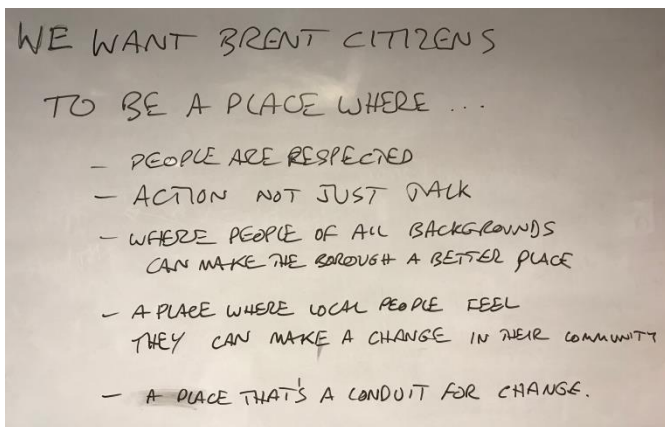 WE WANT BRENT CITIZENS
TO BE A PLACE WHERE ...
- PEOPLE ARE RESPECTED
- ACTION NOT JUST TALK
- WHERE PEOPLE OF ALL BACKGROUNDS
CAN MAKE THE BOROUGH A BETTER PLACE
- A PLACE WHERE LOCAL PEOPLE FEEL
THEY CAN MAKE A CHANGE IN THEIR COMMUNITY
- A PLACE THAT'S A CONDUIT FOR CHANGE.